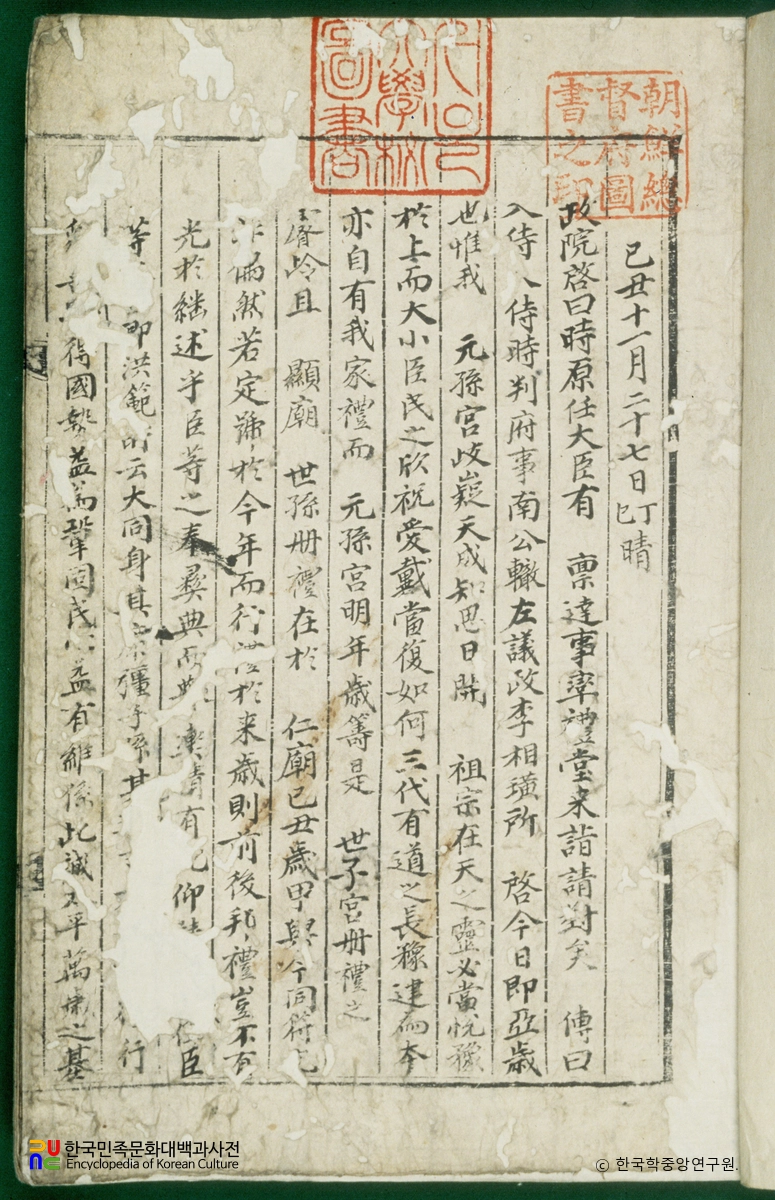 朝鮮總
督府圖
書之印
圖書
大學校
己丑十一月二十七日丁巳晴
政院啓曰時原任大臣有 稟達事率禮堂來詣請對矣 傳曰
入侍入侍時判府事南公轍左議政李相璜所 啓今日即亞歲
也惟我 元孫宮岐嶷天成知思日開 祖宗在天之靈必當悅豫
於上而大小臣民之欣祝愛戴當復如何三代有道之長豫建為本
亦自有我家禮而 元孫宮明年歲籌是 世子宮册禮之
齡且 顯廟 世孫册禮在於 仁廟己丑歲甲與今同符
偶然若定號於今年而行禮於來歲則前後邦禮豈不有
光於繼述乎臣等之奉彛典而 有 仰 臣
等 即洪範所云大同身其康彊子孫其 行
得國勢益為鞏固民心益有維係此誠太平萬歲之基
한국민족문화대백과사전
Encyclopedia of Korean Culture
© 한국학중앙연구원.